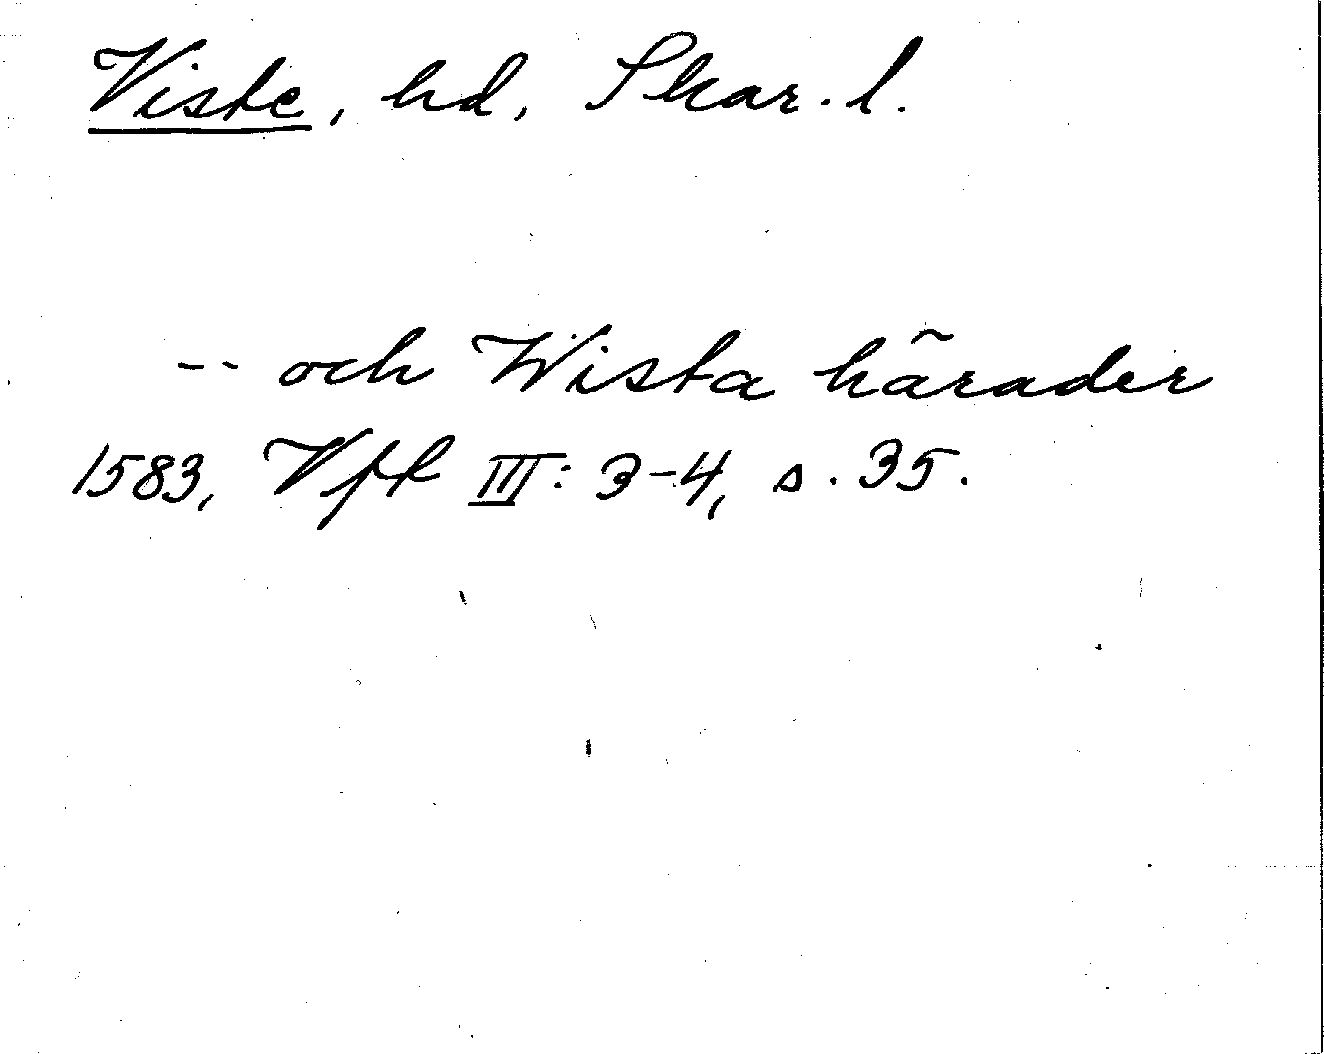 Viste, hd, Skar. l.
-- och Wista härader
1583, Vfl III: 3-4, s. 35.